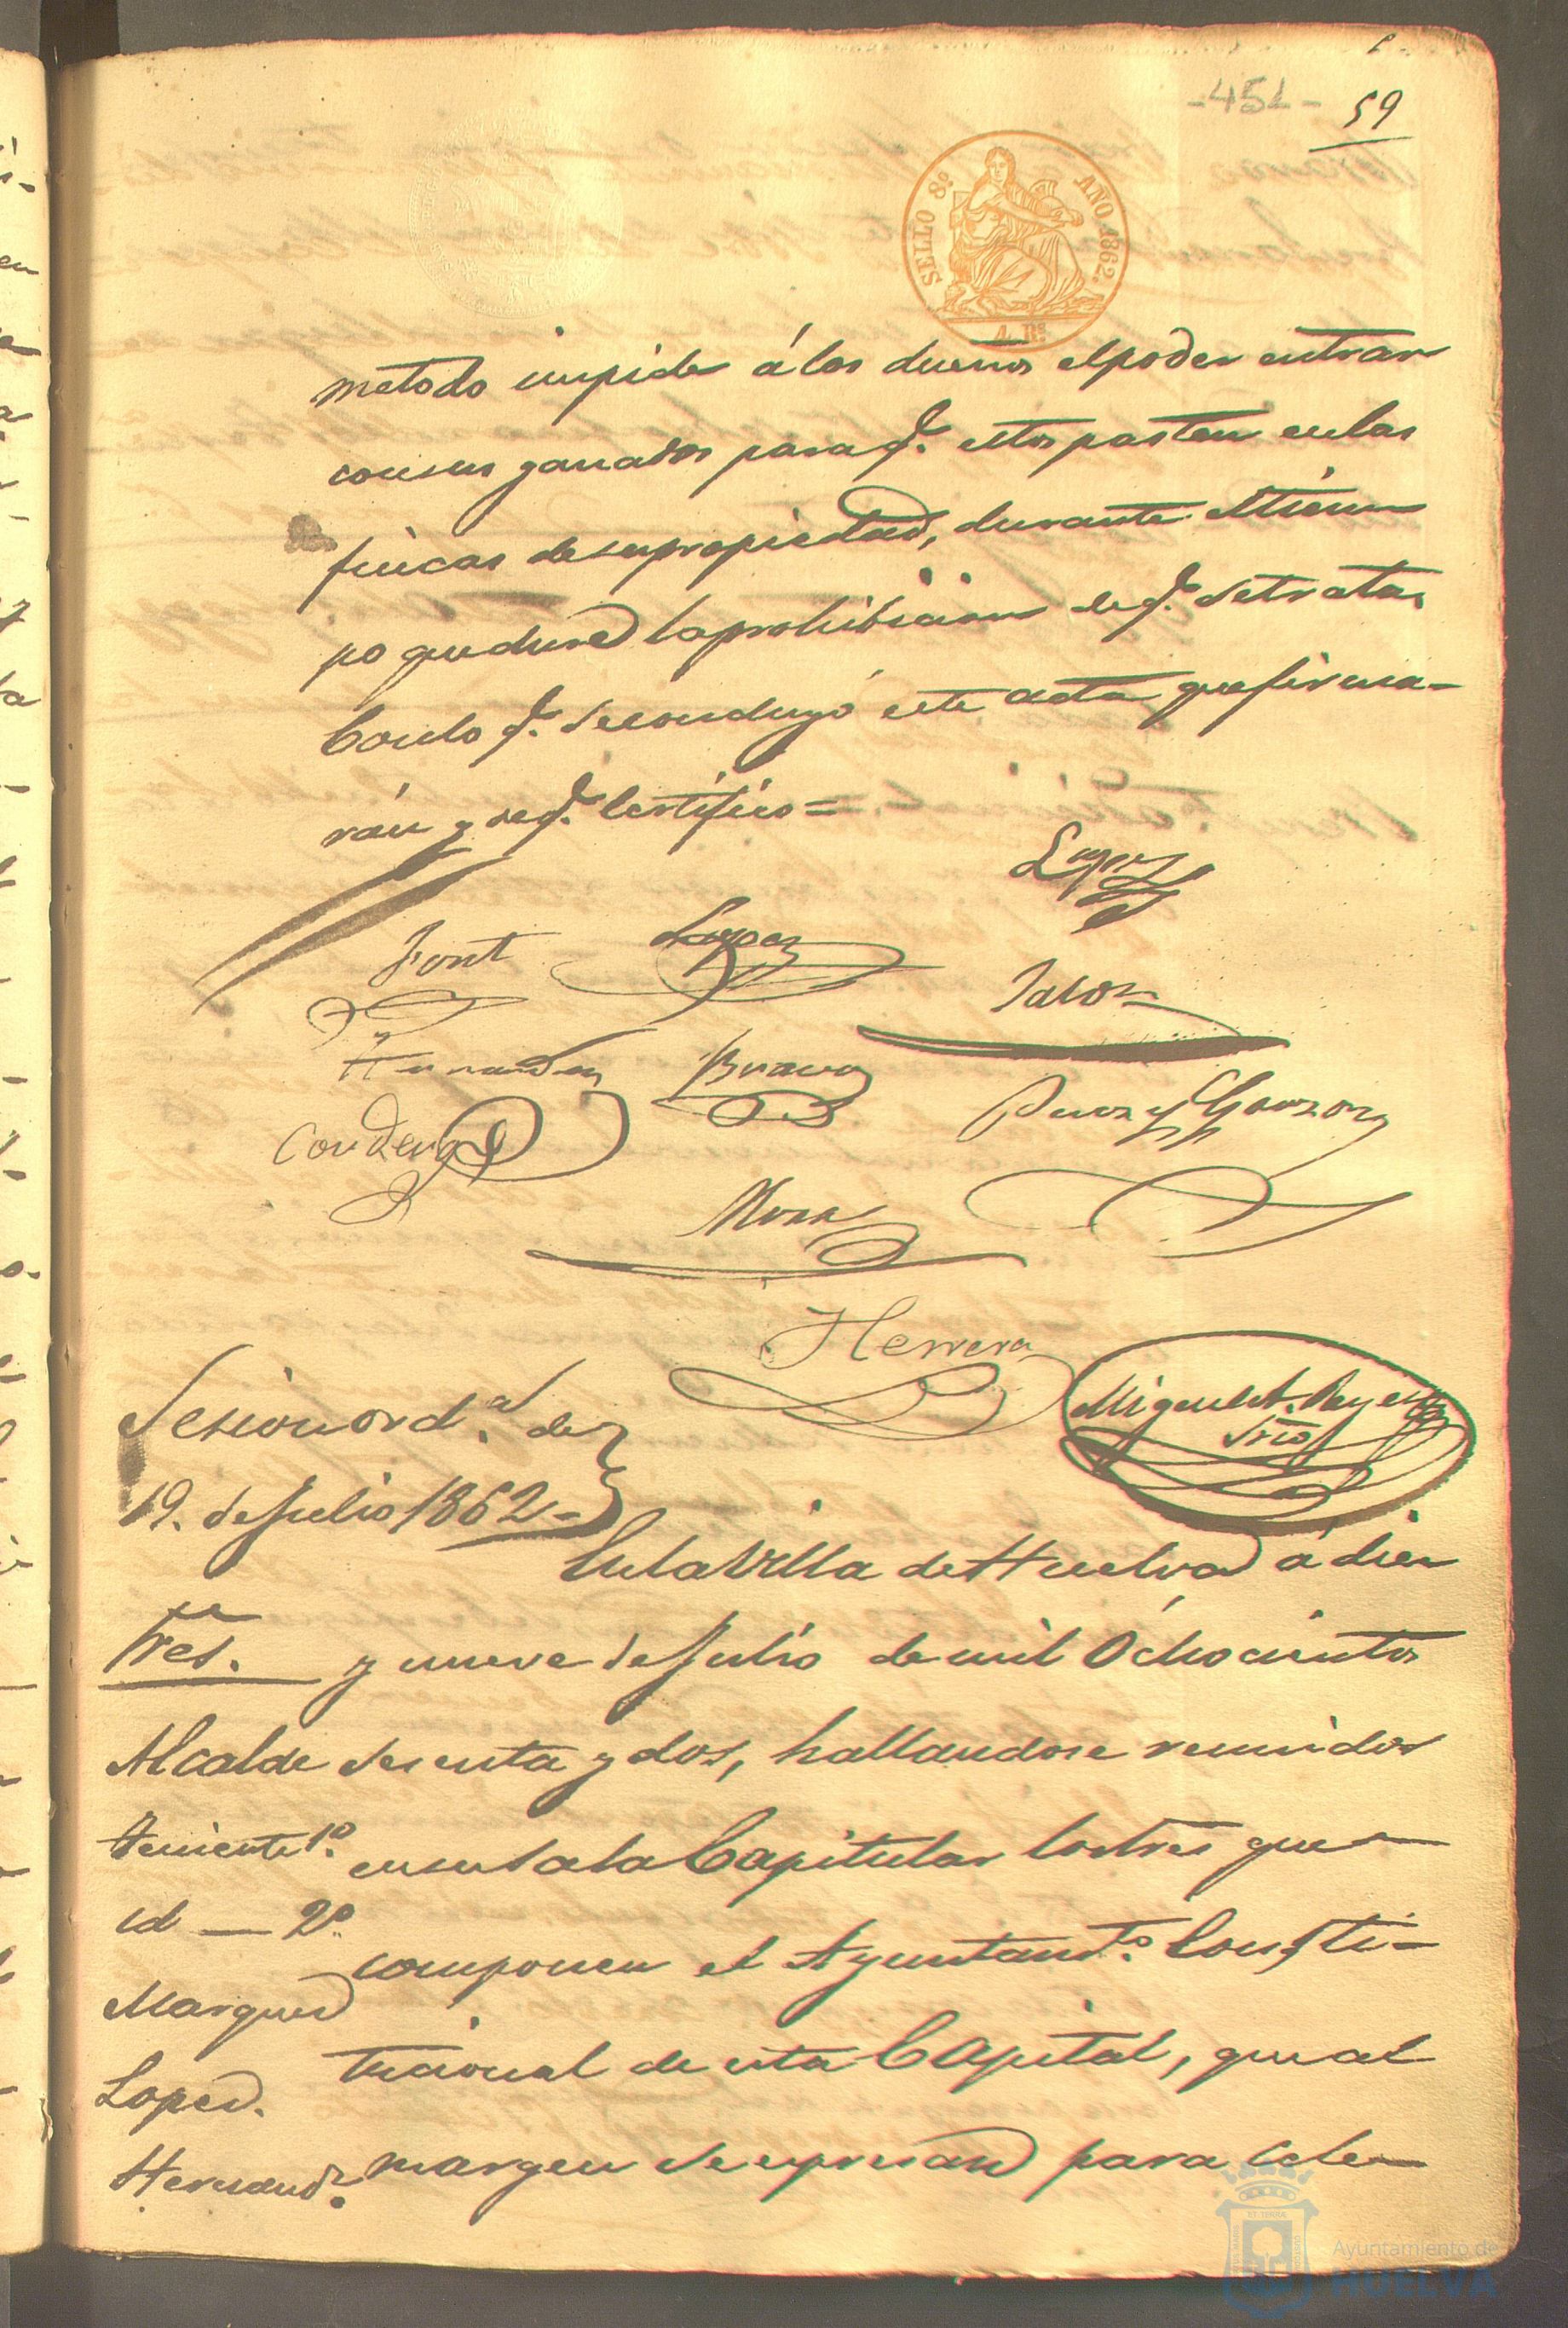 -451-
59
SELLO 8º AÑO 1862.
4 Rs
metodo impide á los duenos el poder entrar
con sus ganados para q.e estos pasten en las
fincas de su propiedad, durante el tiem
po que dure la prohibicion de q.e se trata,
Con lo q.e se concluyó este acta que firma-
rán y de q.e Certifico=
Lopez
Font
Lopez
Jalon
Hernandez
Bravo
Perez y Garzon
Mora
Herrera
Miguel A. Reyes
Srio
Sesion ord.a de
19. de Julio 1862=
En la Villa de Huelva á diez
Sres.
y nueve de Julio de mil Ochocientos
Alcalde
sesenta y dos, hallandose reunidos
teniente 1º
en su Sala Capitular los Sres que
id — 2º
componen el Ayuntam.to Consti-
Marquez
tucional de esta Capital, que al
Lopez.
margen se espresan para cele-
Hernand.z
Ayuntamiento de
HUELVA